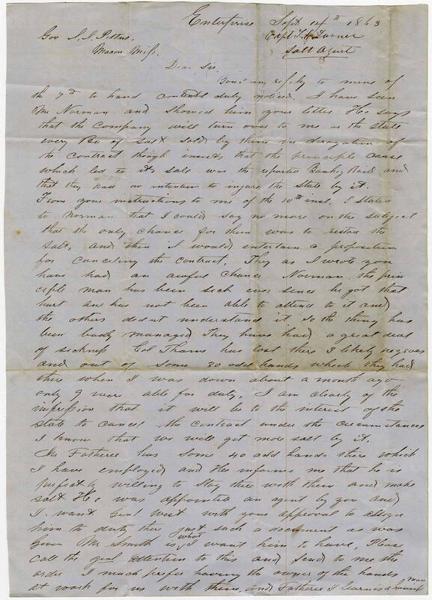 Enterprise Sept 14th 1863
Gov J. J. Pettus Capt T. H. Turner
Macon Miss. Salt Agent
Dear Sir,
Your in reply to mine of
the 7th to hand content duly noticed. I have seen
Mr Norman and showed him your letter He says
that the Company will turn over to me as the State
every Bu of salt sold by them in derogation of
the Contract though insists that the principle cause
which led to its sale was the reported Yankey Raid and
that they had no intention to injure the State by it.
From your instructions to me of the 10th inst, I stated
to Norman that I could say no more on the subject
that the only chance for them was to restore the
Salt, and then I would entertain a proposition
for canceling the contract. They as I wrote you
have had an awful chance Norman the prin
ciple man has been sick ever since he got that
hurt and has not been able to attend to it and
the others do not understand it so the thing has
been badly managed They have had a great deal
of sickness Col Thams has lost there 3 likely negroes
and out of some 20 odd hands which they had
there when I was down about a month ago
only 9 were able for duty. I am clearly of the
impression that it will be to the interest of the
State to cancel the contract under the circumstances
I know that we will get more salt by it.
Mr Fatheree has some 40 odd hands there which
I have employed and He informs me that he is
perfectly willing to stay there with them and make
salt He was appointed an agent by you and
I want with your approval to assign
him to duty there just such a document as was
given Mr Smith is what I want him to have, Please
call the attention to this and send to me the
order I much prefer having the owner of the hands
at work for us with them, and Fatheree is man